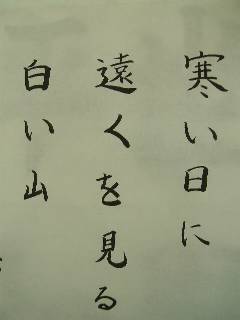 寒い日に
遠くを見る
白い山